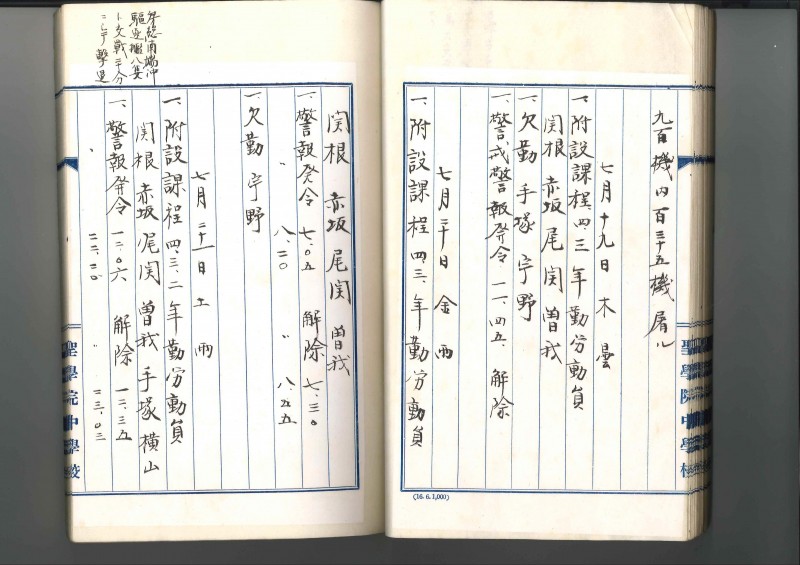 九百機内百三十五機屠ル
七月十九日 木 曇
一、附設課程四、三年勤労動員
関根 赤坂 尾関 曽我
一、欠勤 手塚 宇野
一、警戒警報発令 一一、四五、解除
七月二十日 金 雨
一、附設課程四、三、年勤労動員
聖學院中學校
(16. 6. 1,000)
関根 赤坂 尾関 曽我
一、警報発令 七、〇五 解除 七、三〇
〃 八、二〇 〃 八、五五
一、欠勤 宇野
七月二十一日 土 雨
一、附設課程四、三、二年勤労動員
関根 赤坂 尾関 曽我 手塚 横山
一、警報発令 一二、〇六 解除 一二、三五
〃 二二、二〇 〃 二三、〇三
房総南端沖
驅逐艦八隻
ト交戦三十分
ニシテ撃退
聖學院中學校